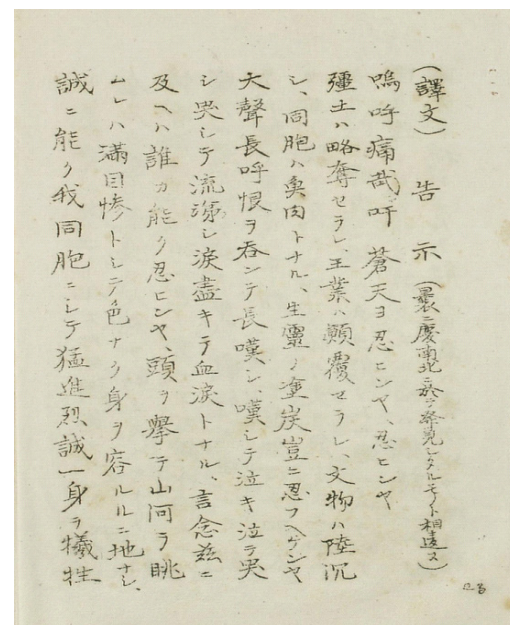 (譯文)　告　示 (曩ニ慶南北ニ於テ発見シタルモノト相違ス)
嗚呼痛哉、吁　蒼天ヨ忍ヒンヤ、忍ヒンヤ
疆土ハ略奪セラレ、王業ハ顛覆セラレ、文物ハ陸沉
シ、同胞ハ魚肉トナル、生靈ノ塗炭豈ニ忍フヘケンヤ
大聲長呼恨ヲ呑ンテ長嘆シ、嘆シテ泣キ泣テ哭
シ哭シテ流涕シ涙盡キテ血涙トナル、言念茲ニ
及ヘハ誰カ能ク忍ヒンヤ、頭ヲ擧テ山河ヲ眺
ムレハ滿目惨トシテ色ナク身ヲ容ルルニ地ナシ、
誠ニ能ク我同胞ニシテ猛進烈誠一身ヲ犠牲